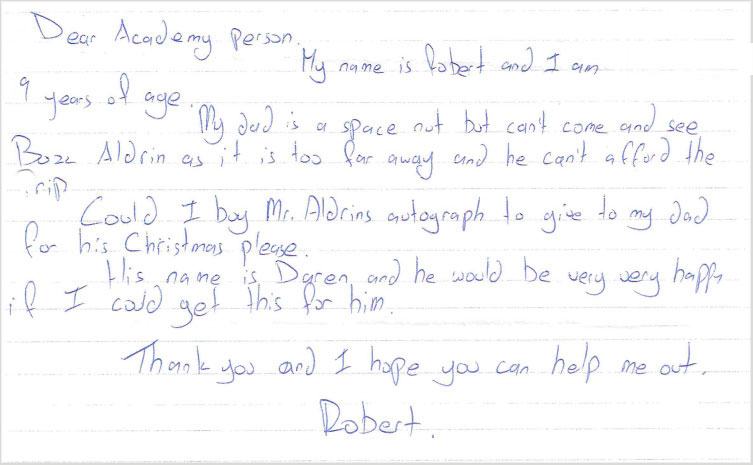 Dear Academy person.
My name is Robert and I am
9 years of age.
My dad is a space nut but can't come and see
Buzz Aldrin as it is too far away and he can't afford the
trip
Could I buy Mr. Aldrins autograph to give to my dad
for his Christmas please.
His name is Daren and he would be very very happy
if I could get this for him.
Thank you and I hope you can help me out.
Robert.